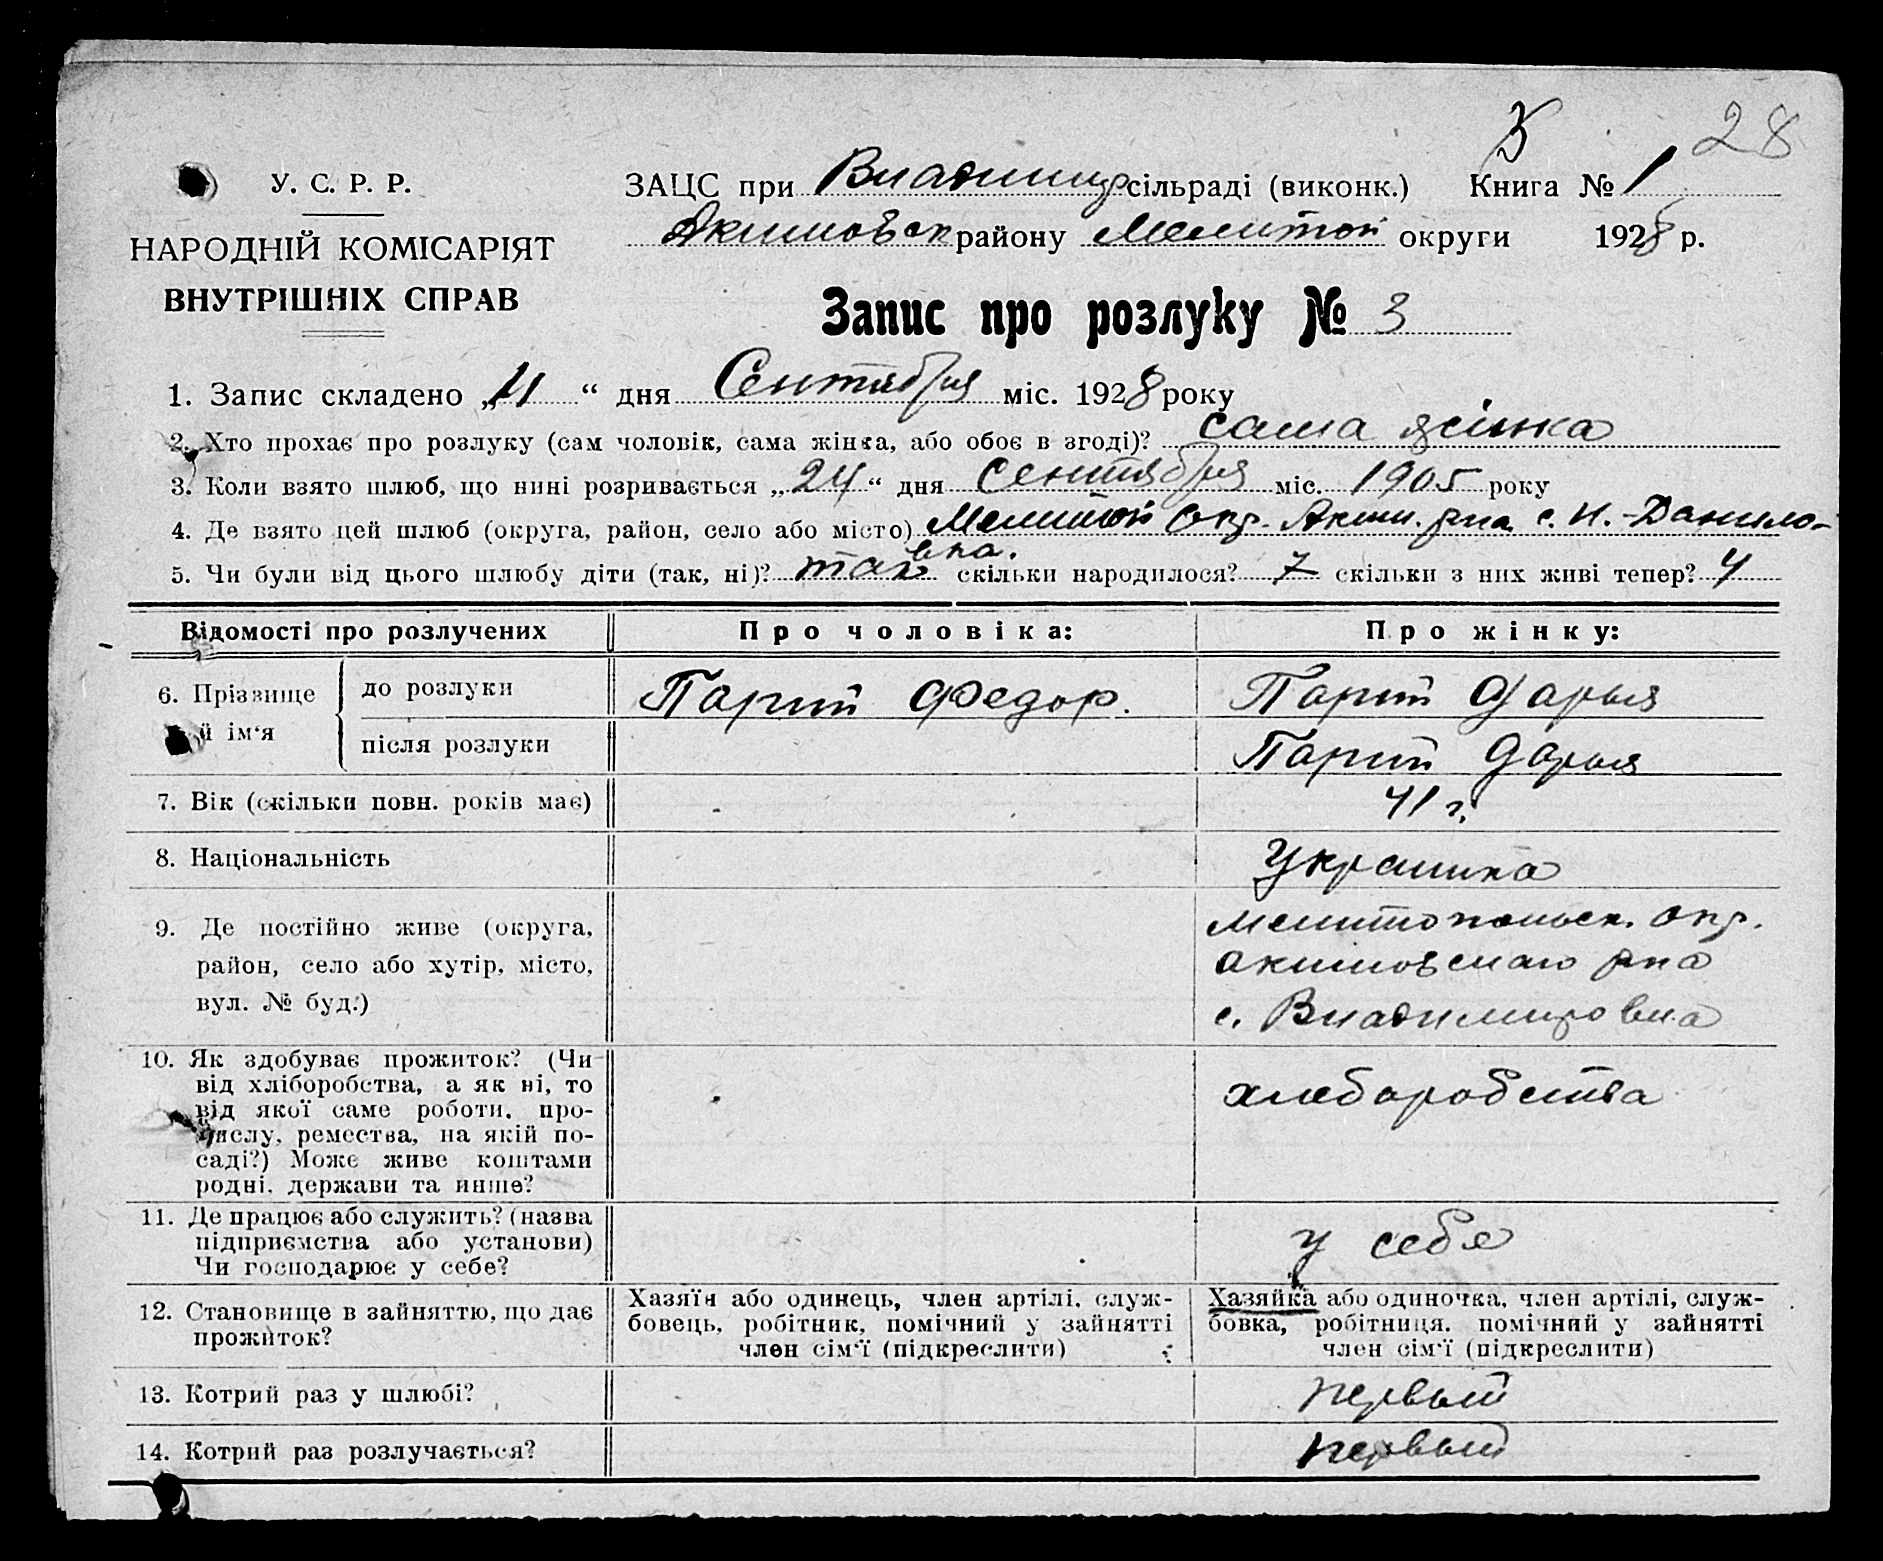 28
У. С. Р. Р.
НАРОДНІЙ КОМІСАРІЯТ
ВНУТРІШНІХ СПРАВ
ЗАЦС при Владимир сільраді (виконк.) Книга № 1
Акимовск району Мелитоп округи 1928 р.
Запис про розлуку № 3
1. Запис складено „11“ дня Сентября міс. 1928 року
2. Хто прохає про розлуку (сам чоловік, сама жінка, або обоє в згоді)? сама жінка
3. Коли взято шлюб, що нині розривається „24“ дня Сентября міс. 1905 року
4. Де взято цей шлюб (округа, район, село або місто) Мелитоп Окр. Аким. р-на с. Н.-Данило-
вка.
5. Чи були від цього шлюбу діти (так, ні)? так скільки народилося? 7 скільки з них живі тепер? 4
Відомості про розлучених Про чоловіка: Про жінку:
6. Прізвище й ім'я
до розлуки Парий Федор. Парий Дарья
після розлуки Парий Дарья
7. Вік (скільки повн. років має) 41 г.
8. Національність Украинка
9. Де постійно живе (округа,
район, село або хутір, місто,
вул. № буд.)
Мелитопольск. Окр.
Акимовскаго р-на
с. Владимировка
10. Як здобуває прожиток? (Чи
від хліборобства, а як ні, то
від якої саме роботи, про-
мислу, ремества, на якій по-
саді?) Може живе коштами
родні, держави та инше?
хлеборобства
11. Де працює або служить? (назва
підприємства або установи)
Чи господарює у себе?
у себе
12. Становище в зайняттю, що дає
прожиток?
Хазяїн або одинець, член артілі, служ-
бовець, робітник, помічний у зайнятті
член сім'ї (підкреслити)
Хазяйка або одиночка, член артілі, служ-
бовка, робітниця, помічний у зайнятті
член сім'ї (підкреслити)
13. Котрий раз у шлюбі? первый
14. Котрий раз розлучається? первый